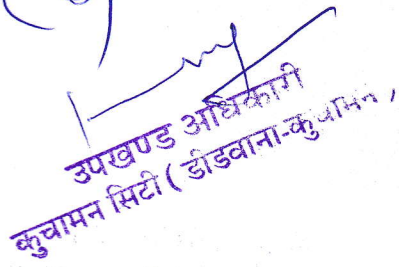 उपखण्ड अधिकारी
कुचामन सिटी ( डीडवाना-कुचामन,